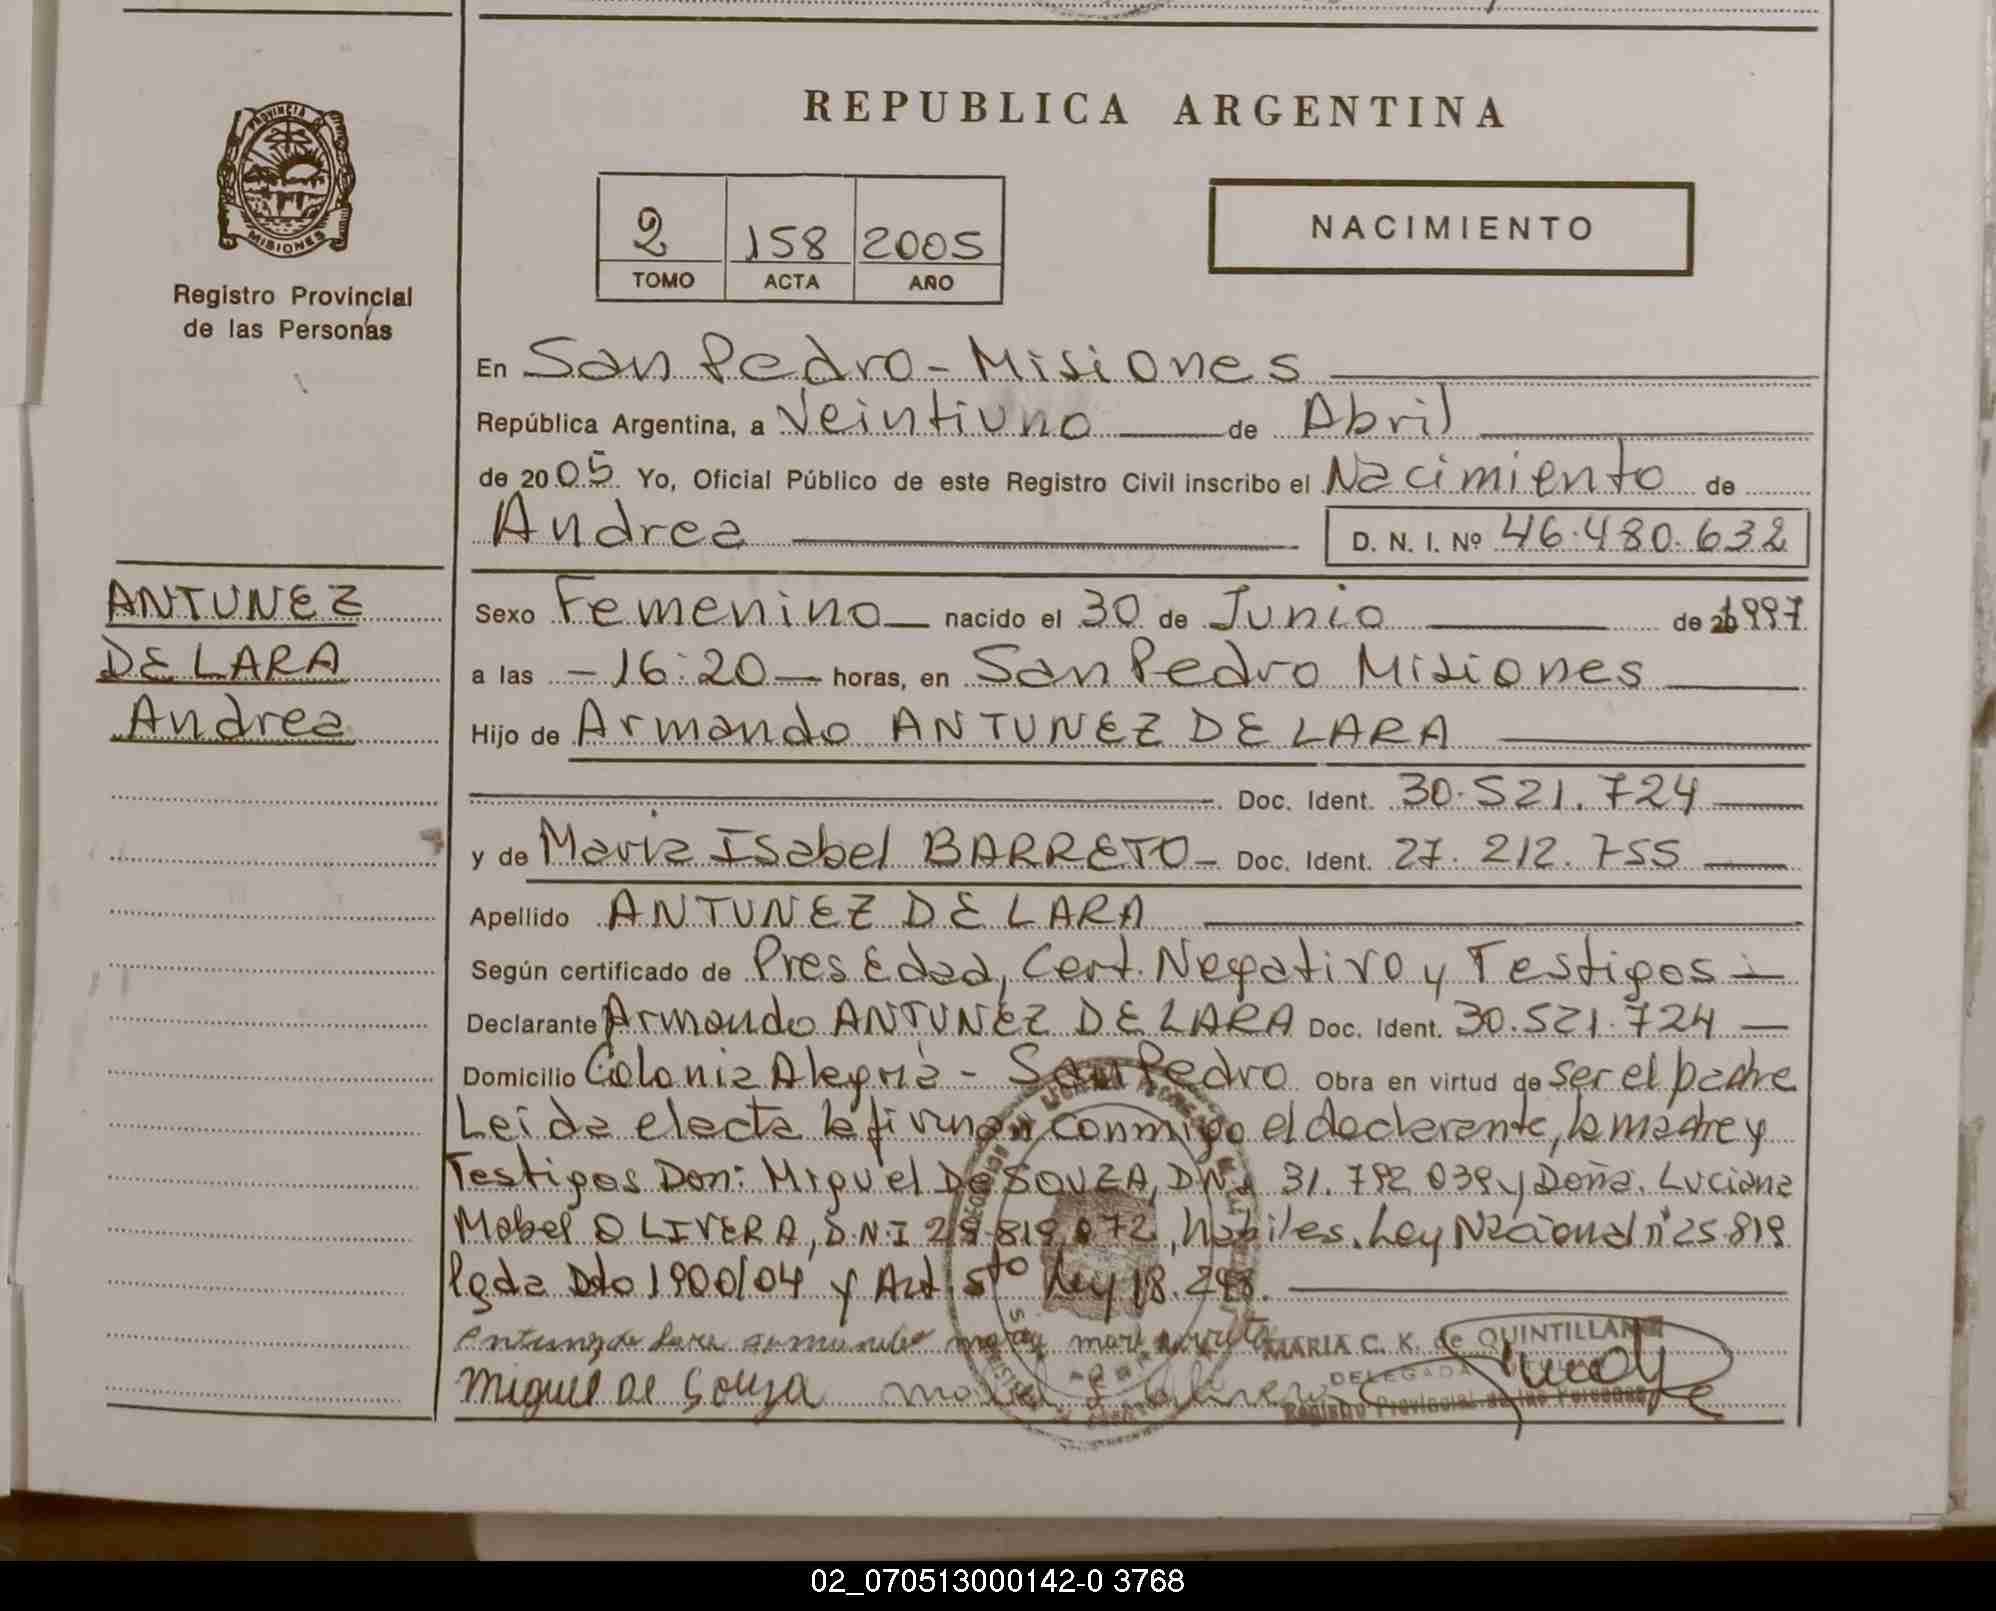 REPUBLICA ARGENTINA
PROVINCIA DE
MISIONES
Registro Provincial
de las Personas
2 158 2005
TOMO ACTA AÑO
NACIMIENTO
En San Pedro - Misiones
República Argentina, a Veintiuno de Abril
de 2005 Yo, Oficial Público de este Registro Civil inscribo el Nacimiento de
Andrea D. N. I. Nº 46.480.632
ANTUNEZ
DE LARA
Andrea
Sexo Femenino nacido el 30 de Junio de 1997
a las -16:20- horas, en San Pedro Misiones
Hijo de Armando ANTUNEZ DE LARA
Doc. Ident. 30.521.724
y de Maria Isabel BARRETO- Doc. Ident. 27.212.755
Apellido ANTUNEZ DE LARA
Según certificado de Pres. Edad, Cert. Negativo y Testigos
Declarante Armando ANTUNEZ DE LARA Doc. Ident. 30.521.724
Domicilio Colonia Alegria - San Pedro Obra en virtud de ser el padre
Leida el acta la firman conmigo el declarante, la madre y
Testigos Don: Miguel De SOUZA, DNI 31.792.039 y Doña. Luciana
Mabel OLIVERA, D.N.I 29.819.072, habiles. Ley Nacional nº 25.819
Dto 1900/04 y Art. 5to Ley 18.248.
Antunez de Lara Armando
MARIA C. K. de QUINTILLAN
Miguel De Souza
DELEGADA
Registro Provincial de las Personas
02_070513000142-0 3768